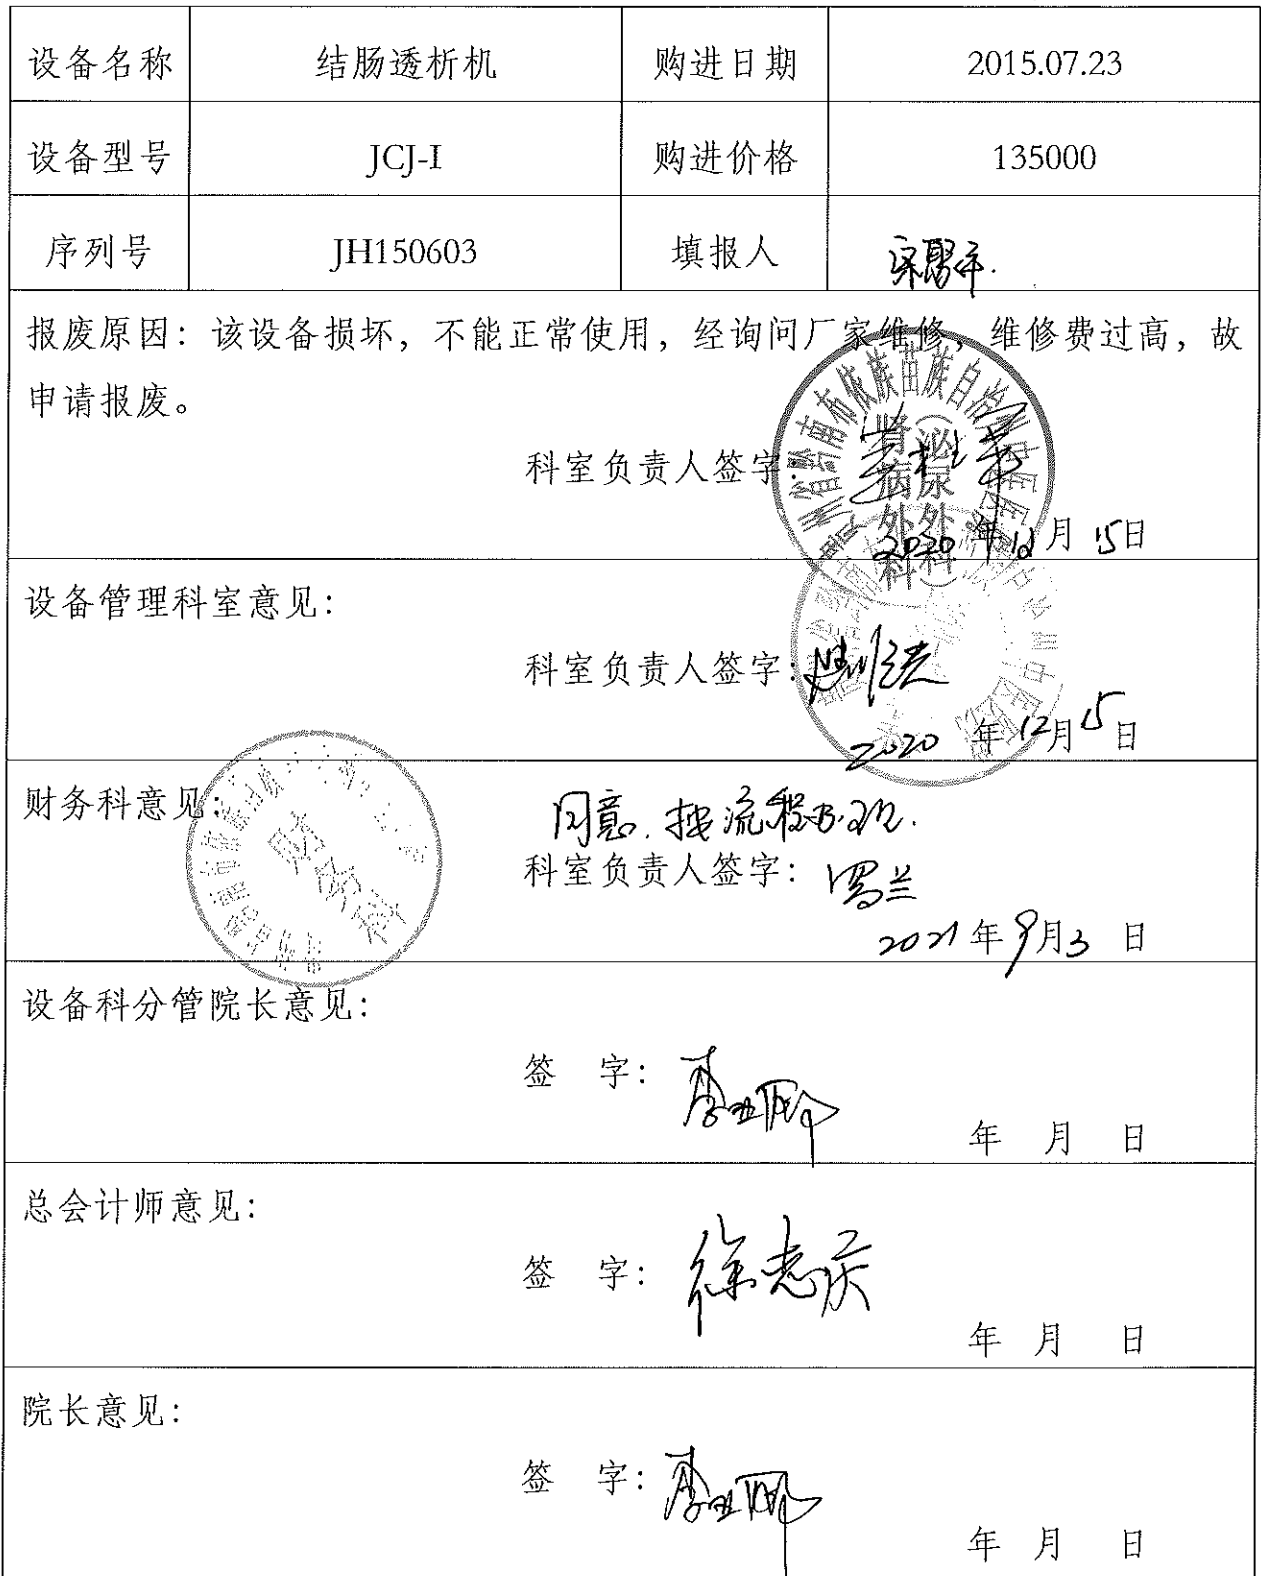 设备名称 结肠透析机 购进日期 2015.07.23
设备型号 JCJ-I 购进价格 135000
序列号 JH150603 填报人
报废原因：该设备损坏，不能正常使用，经询问厂家维修，维修费过高，故
申请报废。
科室负责人签字:
2020 年 12 月 15 日
设备管理科室意见：
科室负责人签字:
2020 年 12 月 15 日
财务科意见：
财务科
同意.按流程办理.
科室负责人签字： 罗兰
2021 年 9 月 3 日
设备科分管院长意见：
签 字：
年 月 日
总会计师意见：
签 字： 徐志庆
年 月 日
院长意见：
签 字：
年 月 日